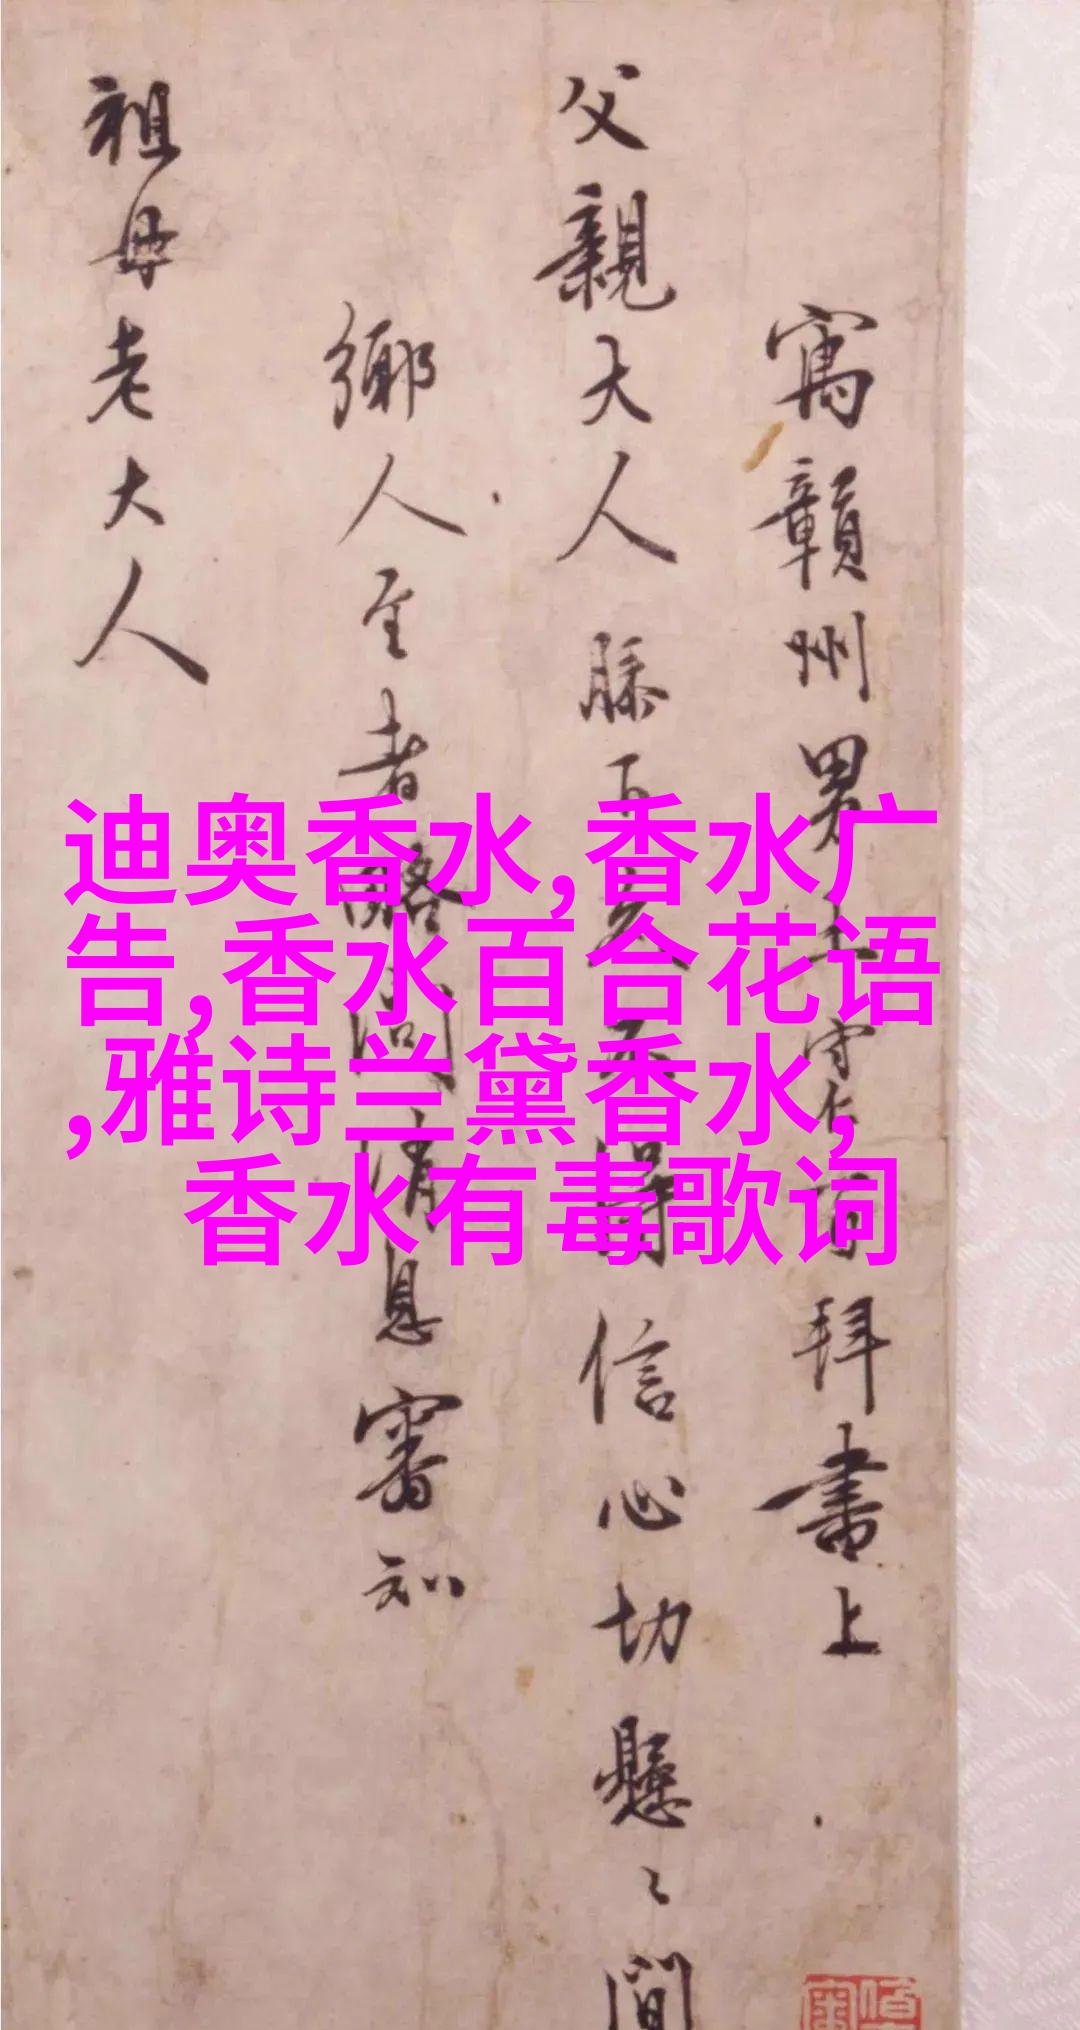 寓贛州男王守仁百拜書上
父親大人膝下久不得信心切懸〻間
鄉人至者略聞消息審知
祖母老大人
迪奥香水,香水广
告,香水百合花语
,雅诗兰黛香水,
香水有毒歌词